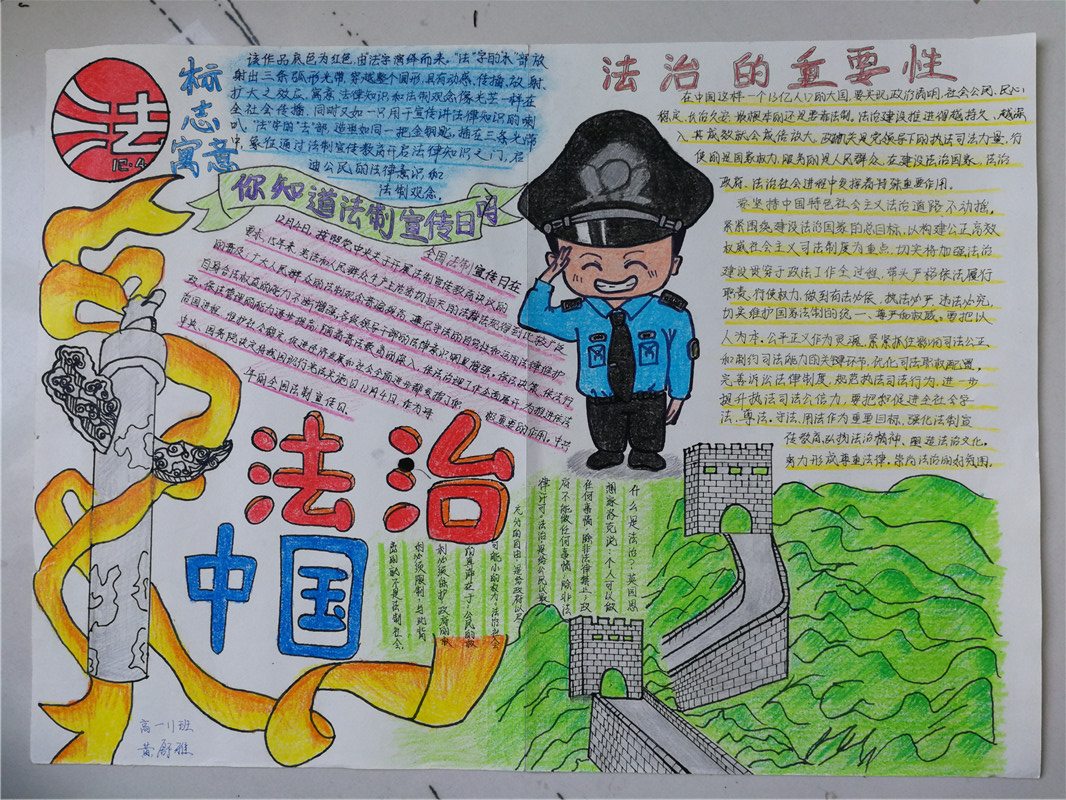 法
12·4
标
志
寓意
该作品底色为红色,由"法"字演绎而来,"法"字的"水"部放
射出三条弧形光带,穿越整个圆形,具有动感、传播、放射、
扩大之效应,寓意法律知识和法制观念像光芒一样在
全社会传播,同时又如一只用于宣传讲法律知识的喇
叭,"法"字的"去"部,造型如同一把金钥匙,插在三条光带
中,象征通过法制宣传教育开启法律知识之门,启
迪公民的法律意识和
法制观念。
你知道法制宣传日吗
12月4日,按照党中央关于开展法制宣传教育决议的
全国法制宣传日在
午的全国法制宣传日。
法治
中国
法治的重要性
在中国这样一个13亿人口的大国,要实现政治清明、社会公民、民心
稳民、长治久安,最根本的还是要靠法制,法治建设推进得越持久、越深
入,其成效就会成倍放大。政法机关是党领导下的执法司法力量,行
使的是国家权力,服务的是人民群众,在建设法治国家、法治
政府、法治社会进程中发挥着特殊重要作用。
要坚持中国特色社会主义法治道路不动摇,
紧紧围绕建设法治国家的总目标,以构建公正高效
权威社会主义司法制度为重点,切实将加强法治
建设贯穿于政法工作全过程,带头严格依法履行
职责、行使权力,做到有法必依、执法必严、违法必究,
切实维护国家法制的统一、尊严和权威。要把以
人为本、公平正义作为灵魂,紧紧抓住影响司法公正
和制约司法能力的关键环节,优化司法职权配置,
完善诉讼法律制度,规范执法司法行为,进一步
提升执法司法公信力。要把握促进全社会学
法、尊法、守法、用法作为重要目标,强化法制宣
传教育,弘扬法治精神,塑造法治文化,
努力形成尊重法律、崇尚法治的好氛围。
什么是法治?英国思
想家洛克说:个人可以做
任何事情,除非法律禁止;政
府不能做任何事情,除非法
律许可。法治,是给公民以最
充分的自由,是给政府以尽
可能小的权力。法治社会
的真谛在于:公民的权
利必须保护,政府的权
力必须限制,与此背
离的就不是法制社会。
高一11班
黄舒雅